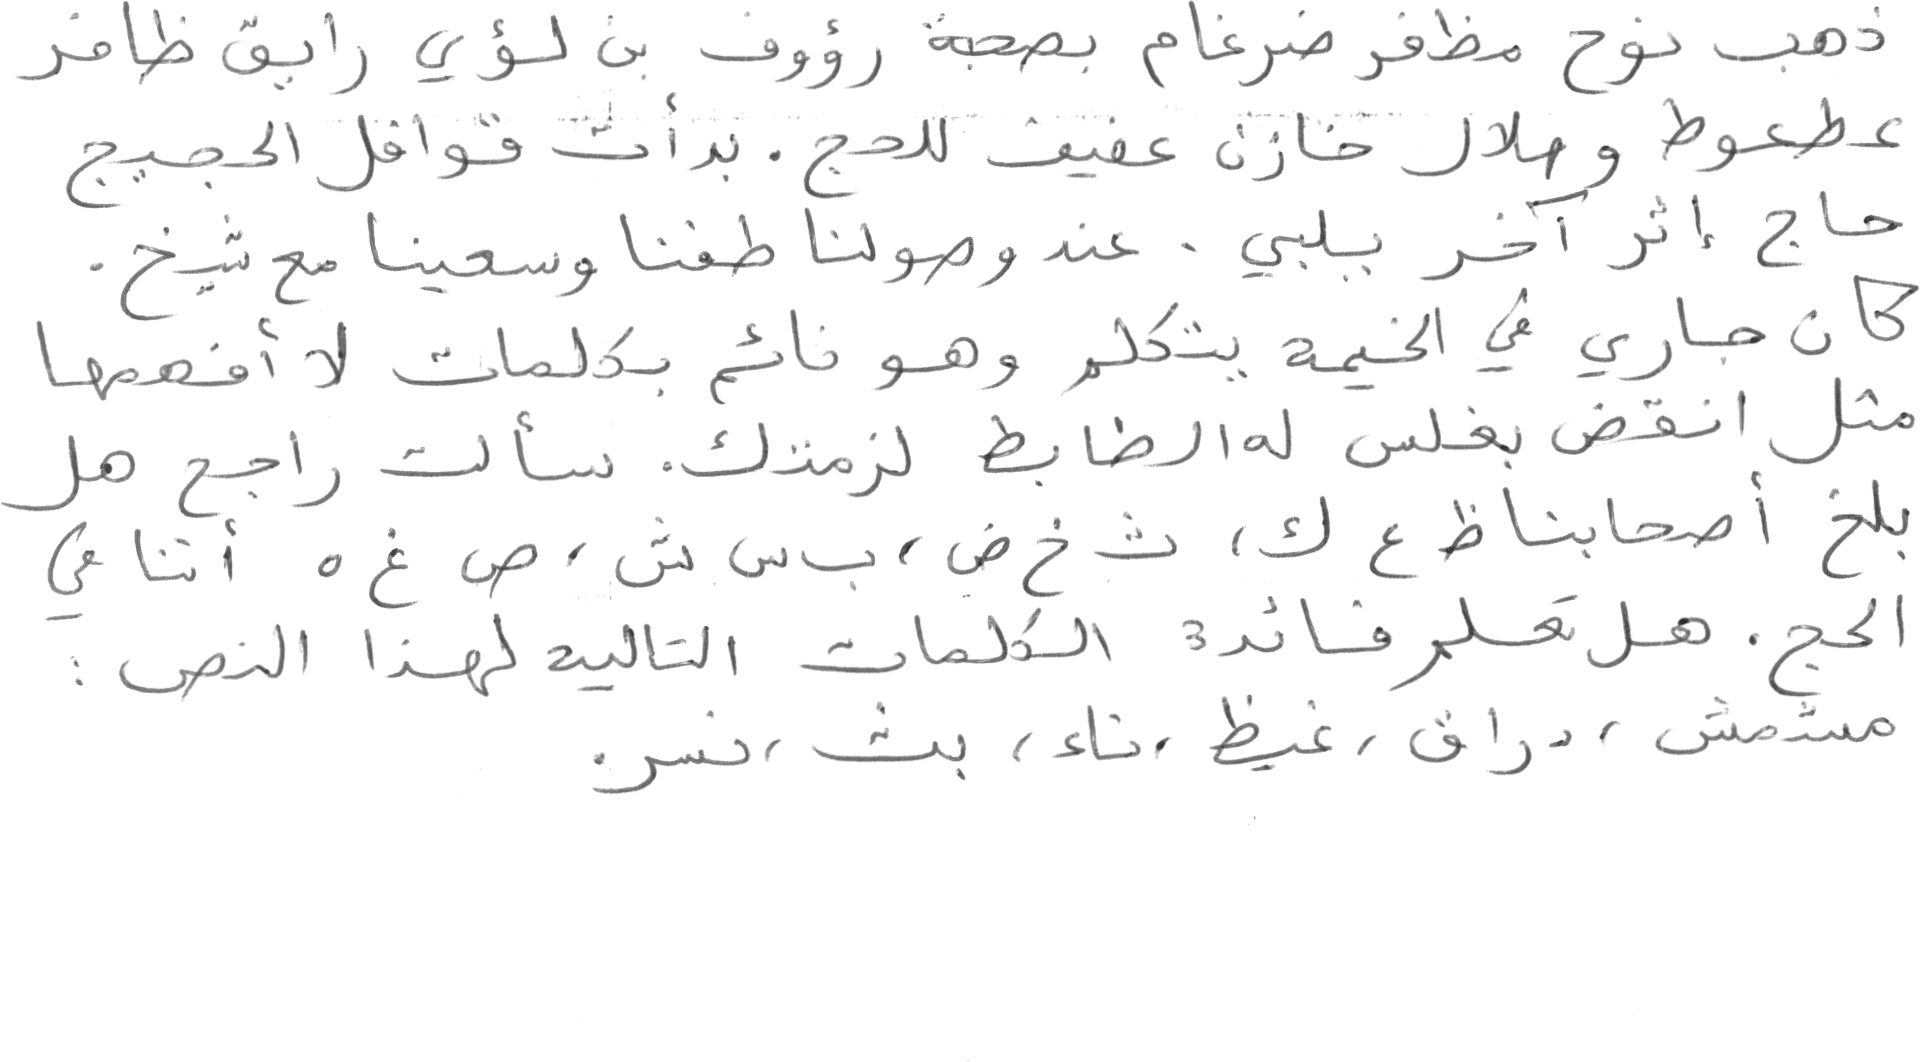 ذهب نوح مظفر ضرغام بصحبة رؤوف بن لؤي رايق ظافر
عطعوط وهلال خازن عفيف للحج. بدأت قوافل الحجيج
حاج إثر آخر يلبي. عند وصولنا طفنا وسعينا مع شيخ.
كان جاري في الخيمه يتكلم وهو نائم بكلمات لا أفهمها
مثل انقض بغلس له الظابط لزمنذك. سألت راجح هل
بلغ أصحابنا ظ ع ك، ث خ ض، ب س ش، ص غ ه أننا في
الحج. هل تعلم فائدة الكلمات التاليه لهذا النص:
مستمش، دراق، غيظ، ناء، بث، نسر.